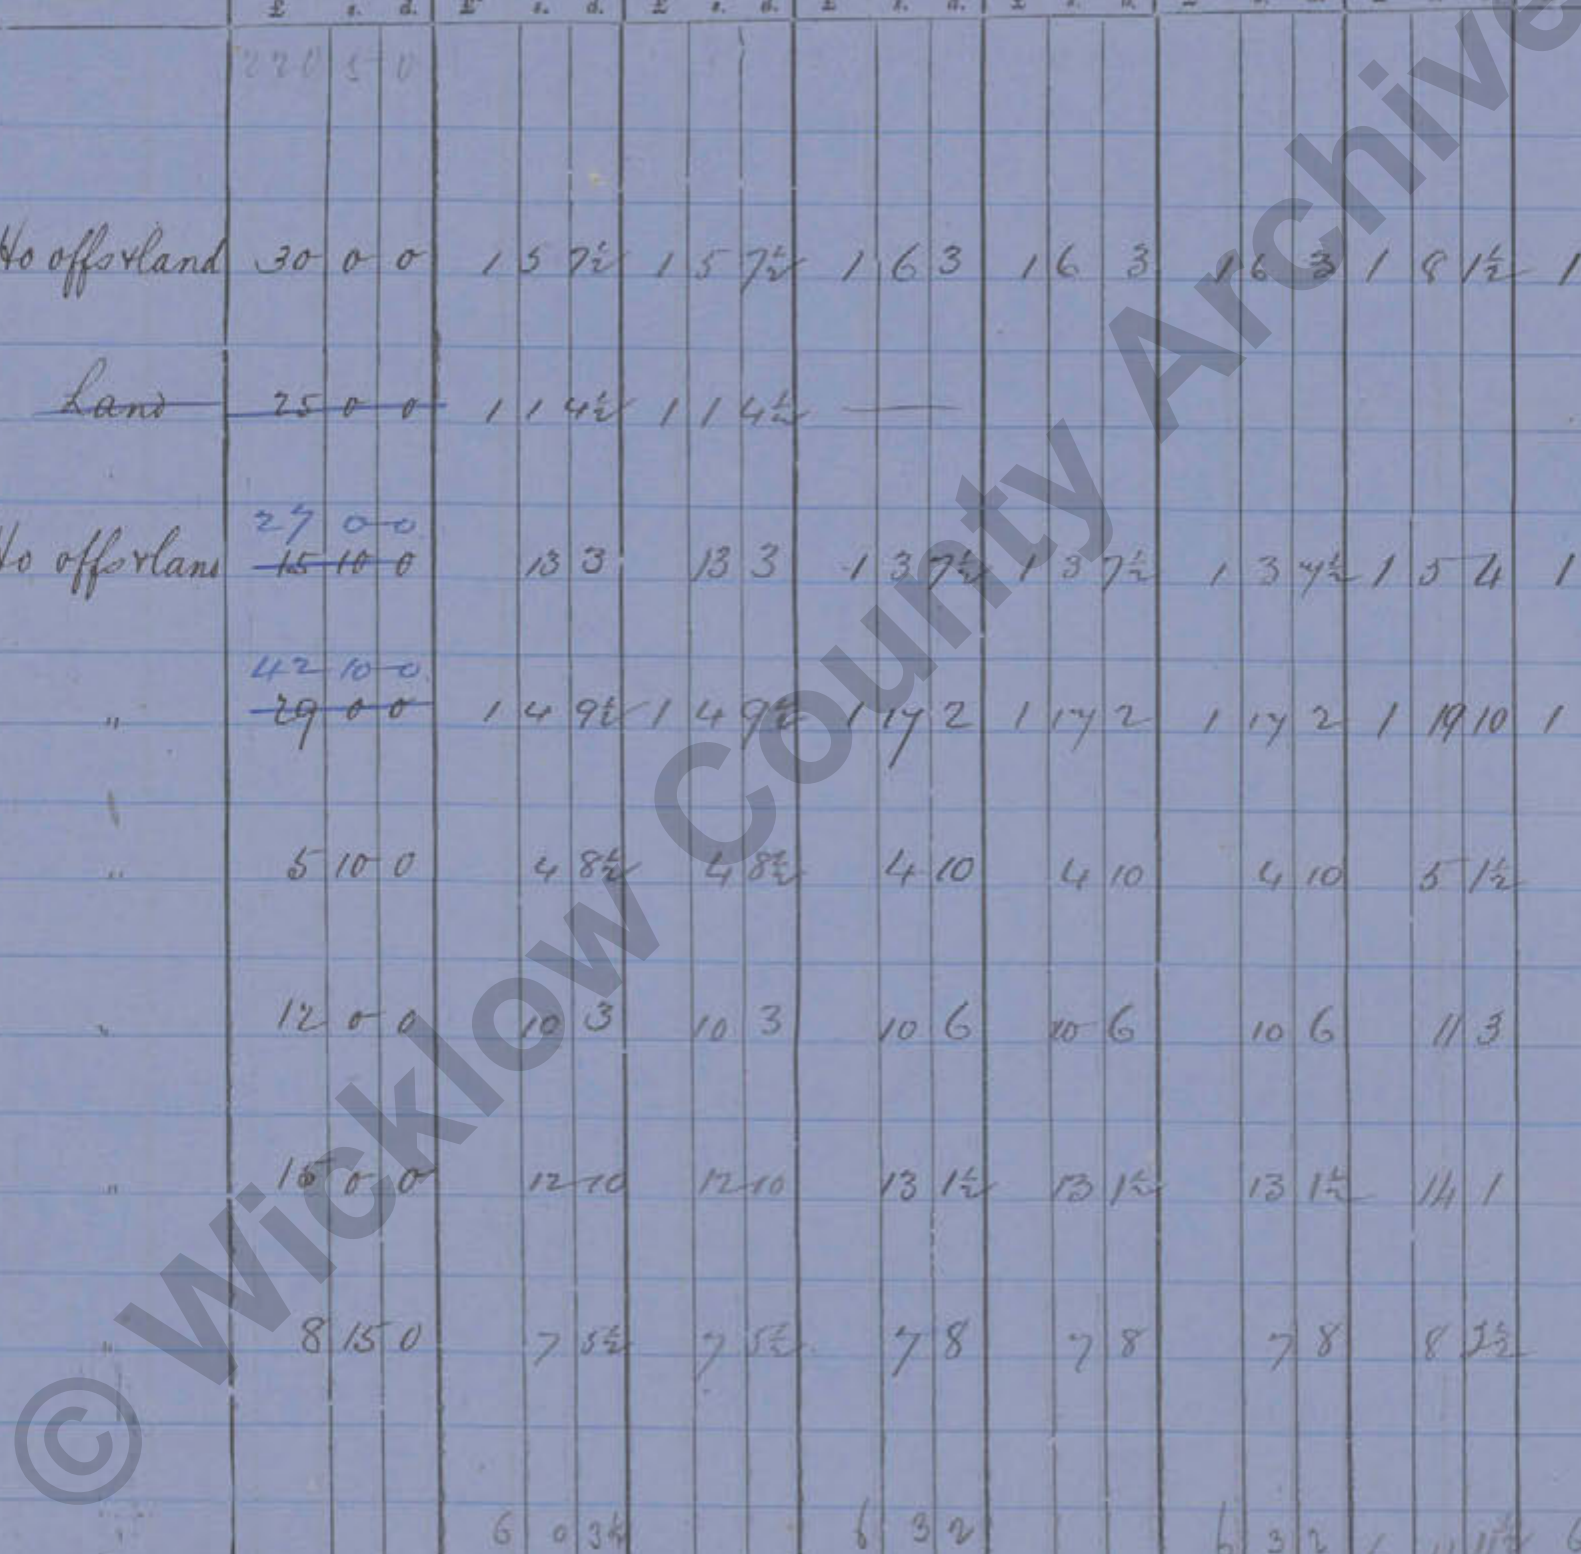 £ s. d. £ s. d. £ s. d. £ s. d. £ s. d.
220 5 0
Ho offs & land 30 0 0 1 5 7½ 1 5 7½ 1 6 3 1 6 3 1 6 3 1 8 1½ 1
Land 25 0 0 1 1 4½ 1 1 4½ —
27 0 0
Ho offs & land 15 10 0 13 3 13 3 1 3 7½ 1 3 7½ 1 3 7½ 1 5 4 1
42 10 0
" 29 0 0 1 4 9½ 1 4 9½ 1 17 2 1 17 2 1 17 2 1 19 10 1
" 5 10 0 4 8½ 4 8½ 4 10 4 10 4 10 5 1½
" 12 0 0 10 3 10 3 10 6 10 6 10 6 11 3
" 15 0 0 12 10 12 10 13 1½ 13 1½ 13 1½ 14 1
" 8 15 0 7 5½ 7 5½ 7 8 7 8 7 8 8 2½
6 0 3½ 6 3 2 6 3 2 6
© Wicklow County Archive